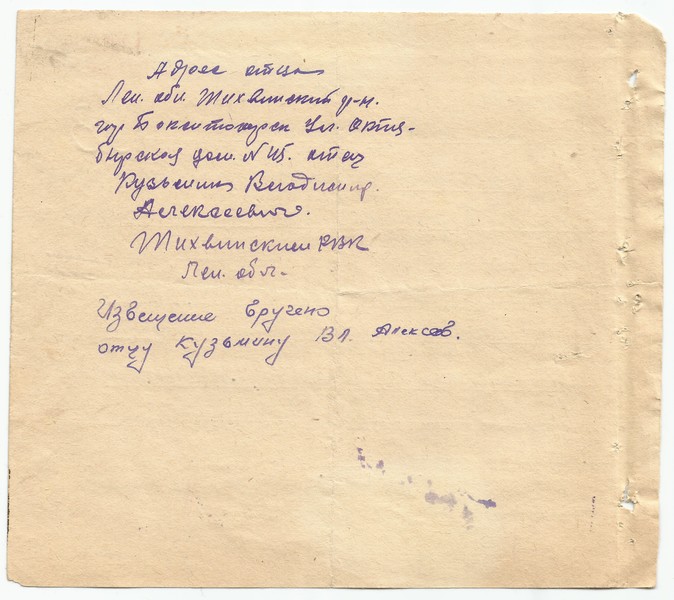 Адрес отца
Лен. обл. Тихвинский р-н.
гор Бокситогорск Ул. Октя-
бырская дом. N 45. отец
Кузьмин Владимир.
Алексеевич.
Тихвинским РВК
Лен. обл.
Извещение вручено
отцу Кузьмину Вл. Алексеев.